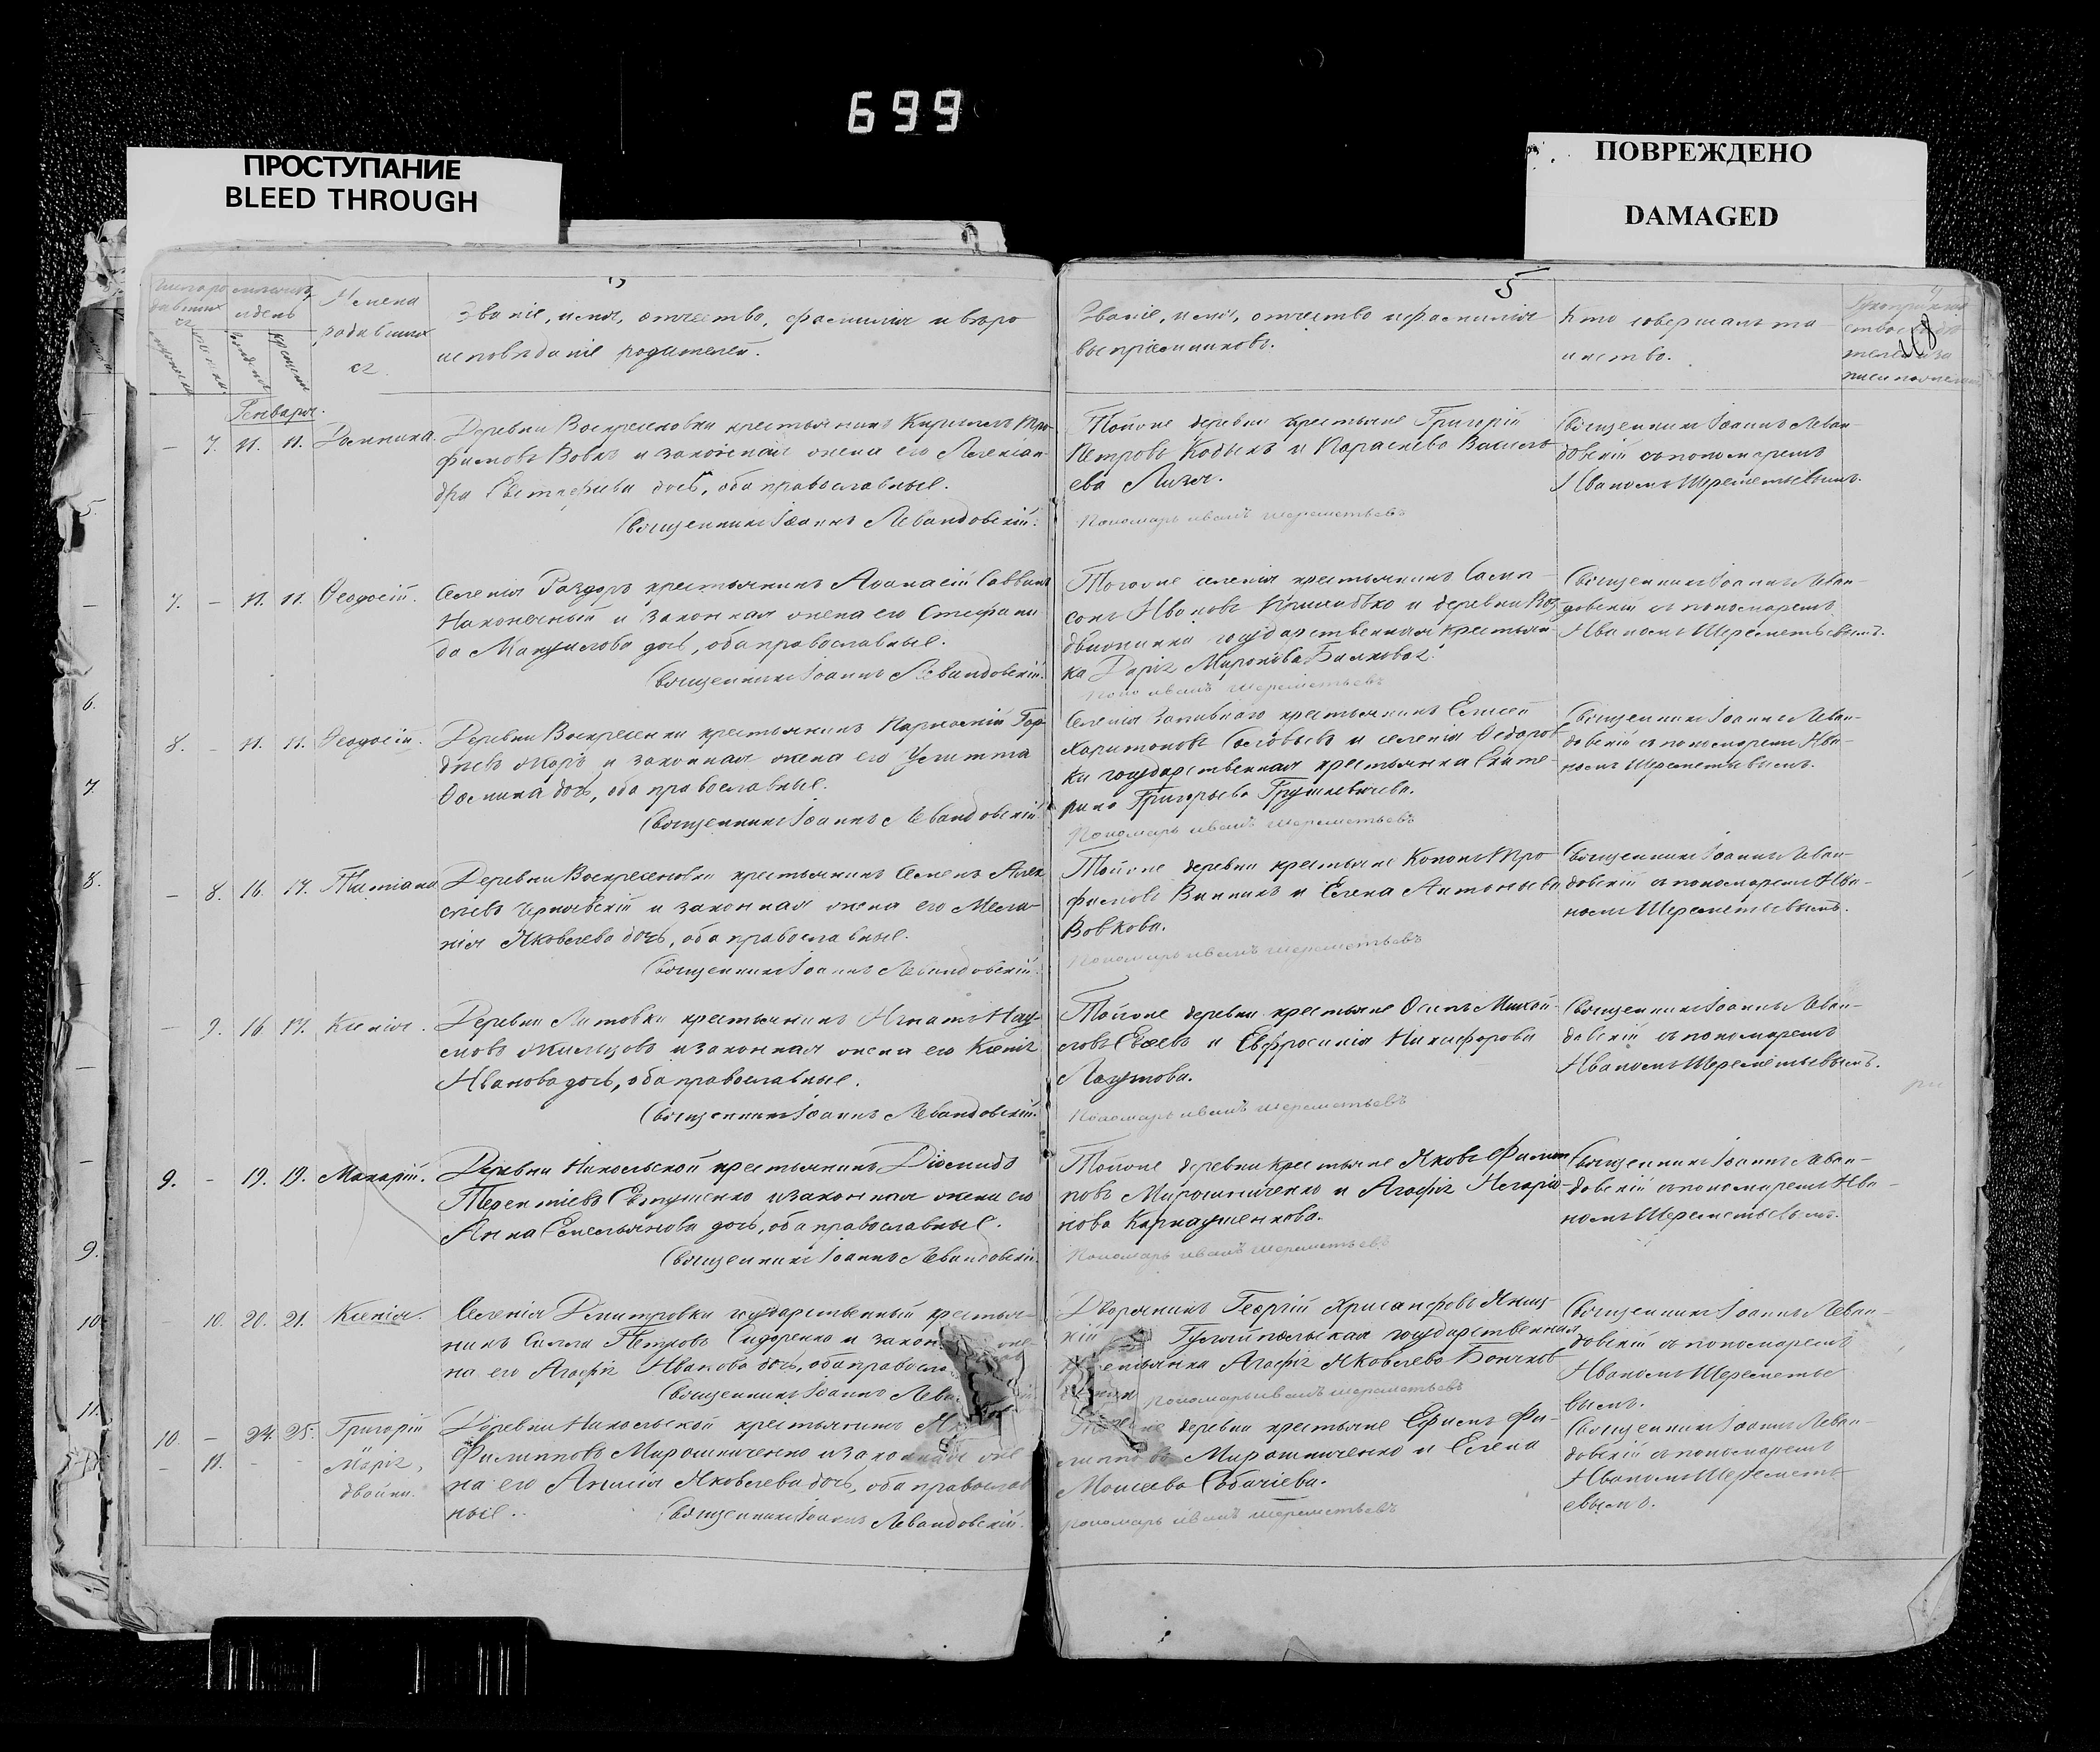 699
ПРОСТУПАНИЕ
BLEED THROUGH
ПОВРЕЖДЕНО
DAMAGED
5
Имена
родивших
ся
Званіе, имя, отчество, фамилія и вѣро
исповѣданіе родителей.
Званіе, имя, отчество и фамилія
воспріемниковъ.
Кто совершалъ та
инство.
Генваря.
– 7. 11. 11. Домникіа.
Деревни Воскресеновки крестьянинъ Кириллъ Тро
фимовъ Вовкъ и законная жена его Алексан
дра Евстафіева дочь, оба православные.
Священникъ Іоаннъ Левандовскій.
Тойже деревни крестьяне Григорій
Петровъ Кобыкъ и Параскева Василь
ева
Пономарь иванъ шереметьевъ
Священникъ Іоаннъ Леван–
довскій съ пономаремъ
Иваномъ Шереметьевымъ.
7. – 11. 11. Ѳеодосій.
Селенія Раздоръ крестьянинъ Аѳанасій Саввинъ
Наконечный и законная жена его Стефани
да Мануилова дочь, оба православные.
Священникъ Іоаннъ Левандовскій.
Тогоже селенія крестьянинъ Самп–
сонъ Ивановъ и деревни Воз
движенки государственная крестьян
ка Дарія Миронова Балковая.
Поно иванъ шереметьевъ
Священникъ Іоаннъ Леван–
довскій съ пономаремъ
Иваномъ Шереметьевымъ.
8. – 11. 11. Ѳеодосій.
Деревни Воскресенки крестьянинъ Гор
дѣевъ и законная жена его Улитта
Ѳомина дочь, оба православные.
Священникъ Іоаннъ Левандовскій
Селенія крестьянинъ Елисей
Харитоновъ Соловьевъ и селенія Ѳедоров
ки государственная крестьянка Екате–
рина Григорьева Грушкевичева.
Пономарь иванъ шереметьевъ
Священникъ Іоаннъ Леван–
довскій съ пономаремъ Ива–
номъ Шереметьевымъ.
– 8. 16. 17. Татіана
Деревни Воскресеновки крестьянинъ Семенъ Алек
сѣевъ Чернявскій и законная жена его Мела–
нія Яковлева дочь, оба православные.
Священникъ Іоаннъ Левандовскій.
Тойже деревни крестьяне Кононъ Тро
фимовъ Винникъ и Елена Антоньева
Вовкова.
Пономарь иванъ шереметьевъ
Священникъ Іоаннъ Леван–
довскій съ пономаремъ Ива–
номъ Шереметьевымъ.
– 9. 16. 17. Ксенія.
Деревни Литовки крестьянинъ Игнатъ Нау–
мовъ Жильцовъ и законная жена его Ксенія
Иванова дочь, оба православные.
Священникъ Іоаннъ Левандовскій.
Тойже деревни крестьяне Осипъ Михай–
ловъ Евсеевъ и Евфросинія Никифорова
Лагутова.
Пономарь иванъ шереметьевъ
Священникъ Іоаннъ Леван–
довскій съ пономаремъ
Иваномъ Шереметьевымъ.
9. – 19. 19. Макарій.
Деревни Никольской крестьянинъ Діомидъ
Терентіевъ Евтушенко и законная жена его
Анна Емельянова дочь, оба православные.
Священникъ Іоаннъ Левандовскій.
Тойже деревни крестьяне Яковъ Филип
повъ Мирошниченко и Агафія Иларіо–
нова Карнаушенкова.
Пономарь иванъ шереметьевъ
Священникъ Іоаннъ Леван–
довскій съ пономаремъ Ива–
номъ Шереметьевымъ.
– 10. 20. 21. Ксенія.
Селенія Дмитровки государственный крестья–
нинъ Савва Петровъ Сидоренко и закон же
на его Агафія Иванова дочь, оба правосла
Священникъ Іоаннъ Леван
Дворянинъ Георгій Хрисанфовъ
Гуляйпольская государственная
крестьянка Агафія Яковлева
Пономарь иванъ шереметьевъ
Священникъ Іоаннъ Леван–
довскій съ пономаремъ
Иваномъ Шереметье
вымъ.
10. – 24. 25. Григорій
– 11. – – и Марія,
двойни.
Деревни Никольской крестьянинъ
Филипповъ Мирошниченко и законная же
на его Анисія Яковлева дочь, оба православ
ные.
Священникъ Іоаннъ Левандовскій.
Тойже деревни крестьяне Ефимъ Фи–
липповъ Мирошниченко и Елена
Моисеева Собачіева.
Пономарь иванъ шереметьевъ
Священникъ Іоаннъ Леван–
довскій съ пономаремъ
Иваномъ Шеремет
евымъ.
5.
6.
7.
8.
9.
10.
11.